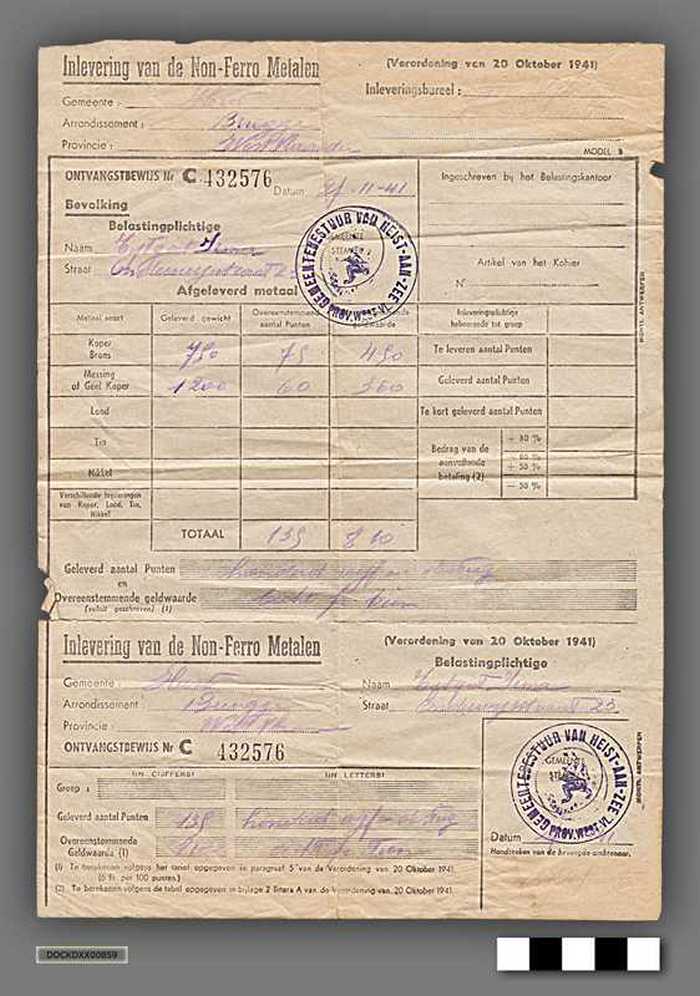 Inlevering van de Non-Ferro Metalen
(Verordening van 20 Oktober 1941)
Gemeente :
Inleveringsbureel :
Arrondissement : Brugge
Provincie : West Vlaanderen
MODEL B
ONTVANGSTBEWIJS Nr C. 432576
Datum 11-41
Ingeschreven bij het Belastingskantoor
Bevolking
Belastingplichtige
Naam
Straat
Artikel van het Kohier
N°
GEMEENTEBESTUUR VAN HEIST-AAN-ZEE
PROV. WEST-VL.
Afgeleverd metaal
Metaal soort
Geleverd gewicht
Overeenstemmend aantal Punten
geldwaarde
Inleveringsplichtige behoorende tot groep
Koper Brons 750 75 450
Te leveren aantal Punten
Messing of Geel Koper 1200 60 360
Geleverd aantal Punten
Lood
Te kort geleverd aantal Punten
Tin
Bedrag van de aanvullende betaling (2)
+ 50 %
— 50 %
Nikkel
Verschillende legeeringen van Koper, Lood, Tin, Nikkel
TOTAAL 135 810
Geleverd aantal Punten
en
Overeenstemmende geldwaarde
(voluit geschreven) (1)
Inlevering van de Non-Ferro Metalen
(Verordening van 20 Oktober 1941)
Belastingplichtige
Gemeente : Heist
Naam
Arrondissement : Brugge
Straat 23
Provincie : West Vl
ONTVANGSTBEWIJS Nr C 432576
(IN CIJFERS)
(IN LETTERS)
Groep :
GEMEENTEBESTUUR VAN HEIST-AAN-ZEE
PROV. WEST-VL.
Geleverd aantal Punten 135
Overeenstemmende Geldwaarde (1)
Datum
Handteeken van de bevoegde ambtenaar.
(1) Te berekenen volgens het tarief opgegeven in paragraaf 5 van de Verordening van 20 Oktober 1941
(6 fr. per 100 punten.)
(2) Te berekenen volgens de tabel opgegeven in bijlage 2 litera A van de Verordening van 20 Oktober 1941.
DOCKDXX00859